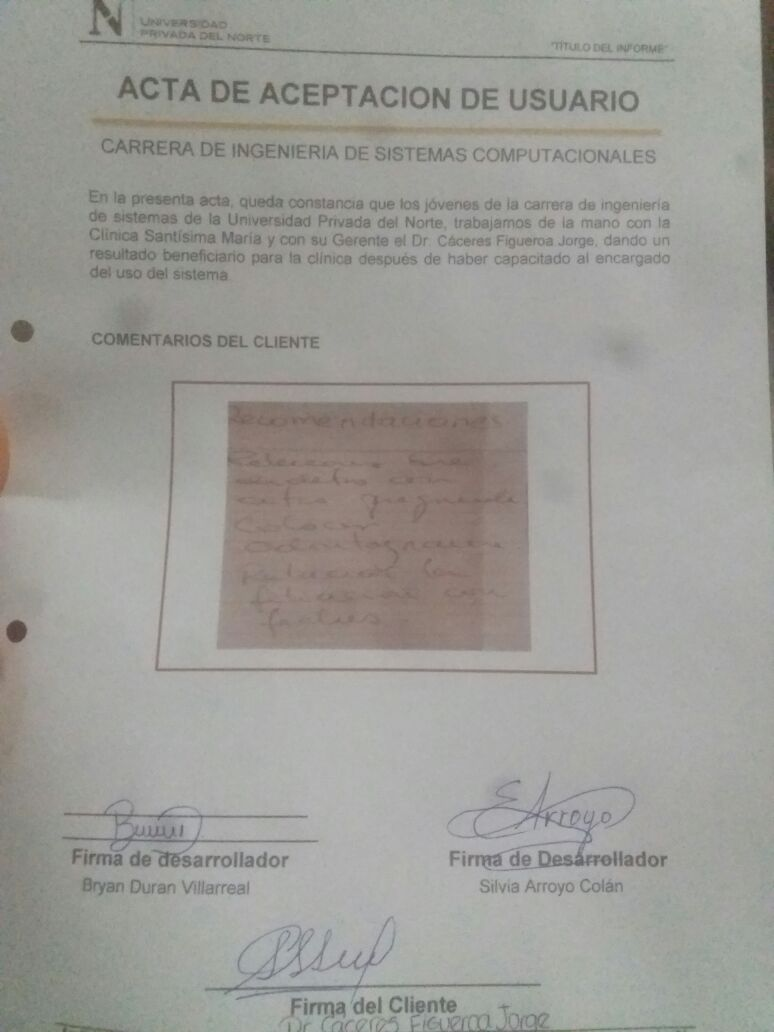 N UNIVERSIDAD
PRIVADA DEL NORTE
"TÍTULO DEL INFORME"
ACTA DE ACEPTACION DE USUARIO
CARRERA DE INGENIERIA DE SISTEMAS COMPUTACIONALES
En la presente acta, queda constancia que los jóvenes de la carrera de ingeniería
de sistemas de la Universidad Privada del Norte, trabajamos de la mano con la
Clínica Santísima María y con su Gerente el Dr. Cáceres Figueroa Jorge, dando un
resultado beneficiario para la clínica después de haber capacitado al encargado
del uso del sistema.
COMENTARIOS DEL CLIENTE
Recomendaciones
con
Colocar
Odontograma
Firma de desarrollador
Bryan Duran Villarreal
E Arroyo
Firma de Desarrollador
Silvia Arroyo Colán
Firma del Cliente
Dr Caceres Figueroa Jorge